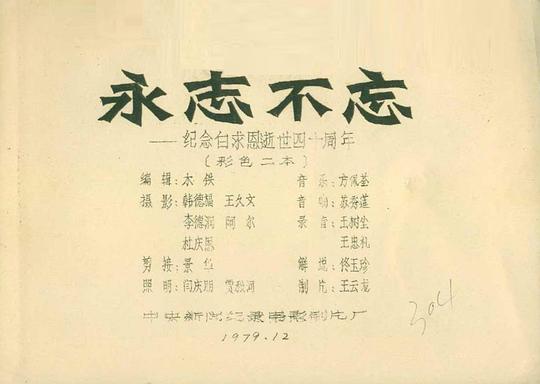 永志不忘
——纪念白求恩逝世四十周年
(彩色二本)
编辑:木铁 音乐:方佩荃
摄影:韩德福 王久文 音响:苏秀莲
李德润 阿尔 录音:王树尘
杜庆恩 王忠礼
剪接:景华 解说:佟玉珍
照明:闫庆朋 制片:王云龙
中央新闻纪录电影制片厂
1979.12
304